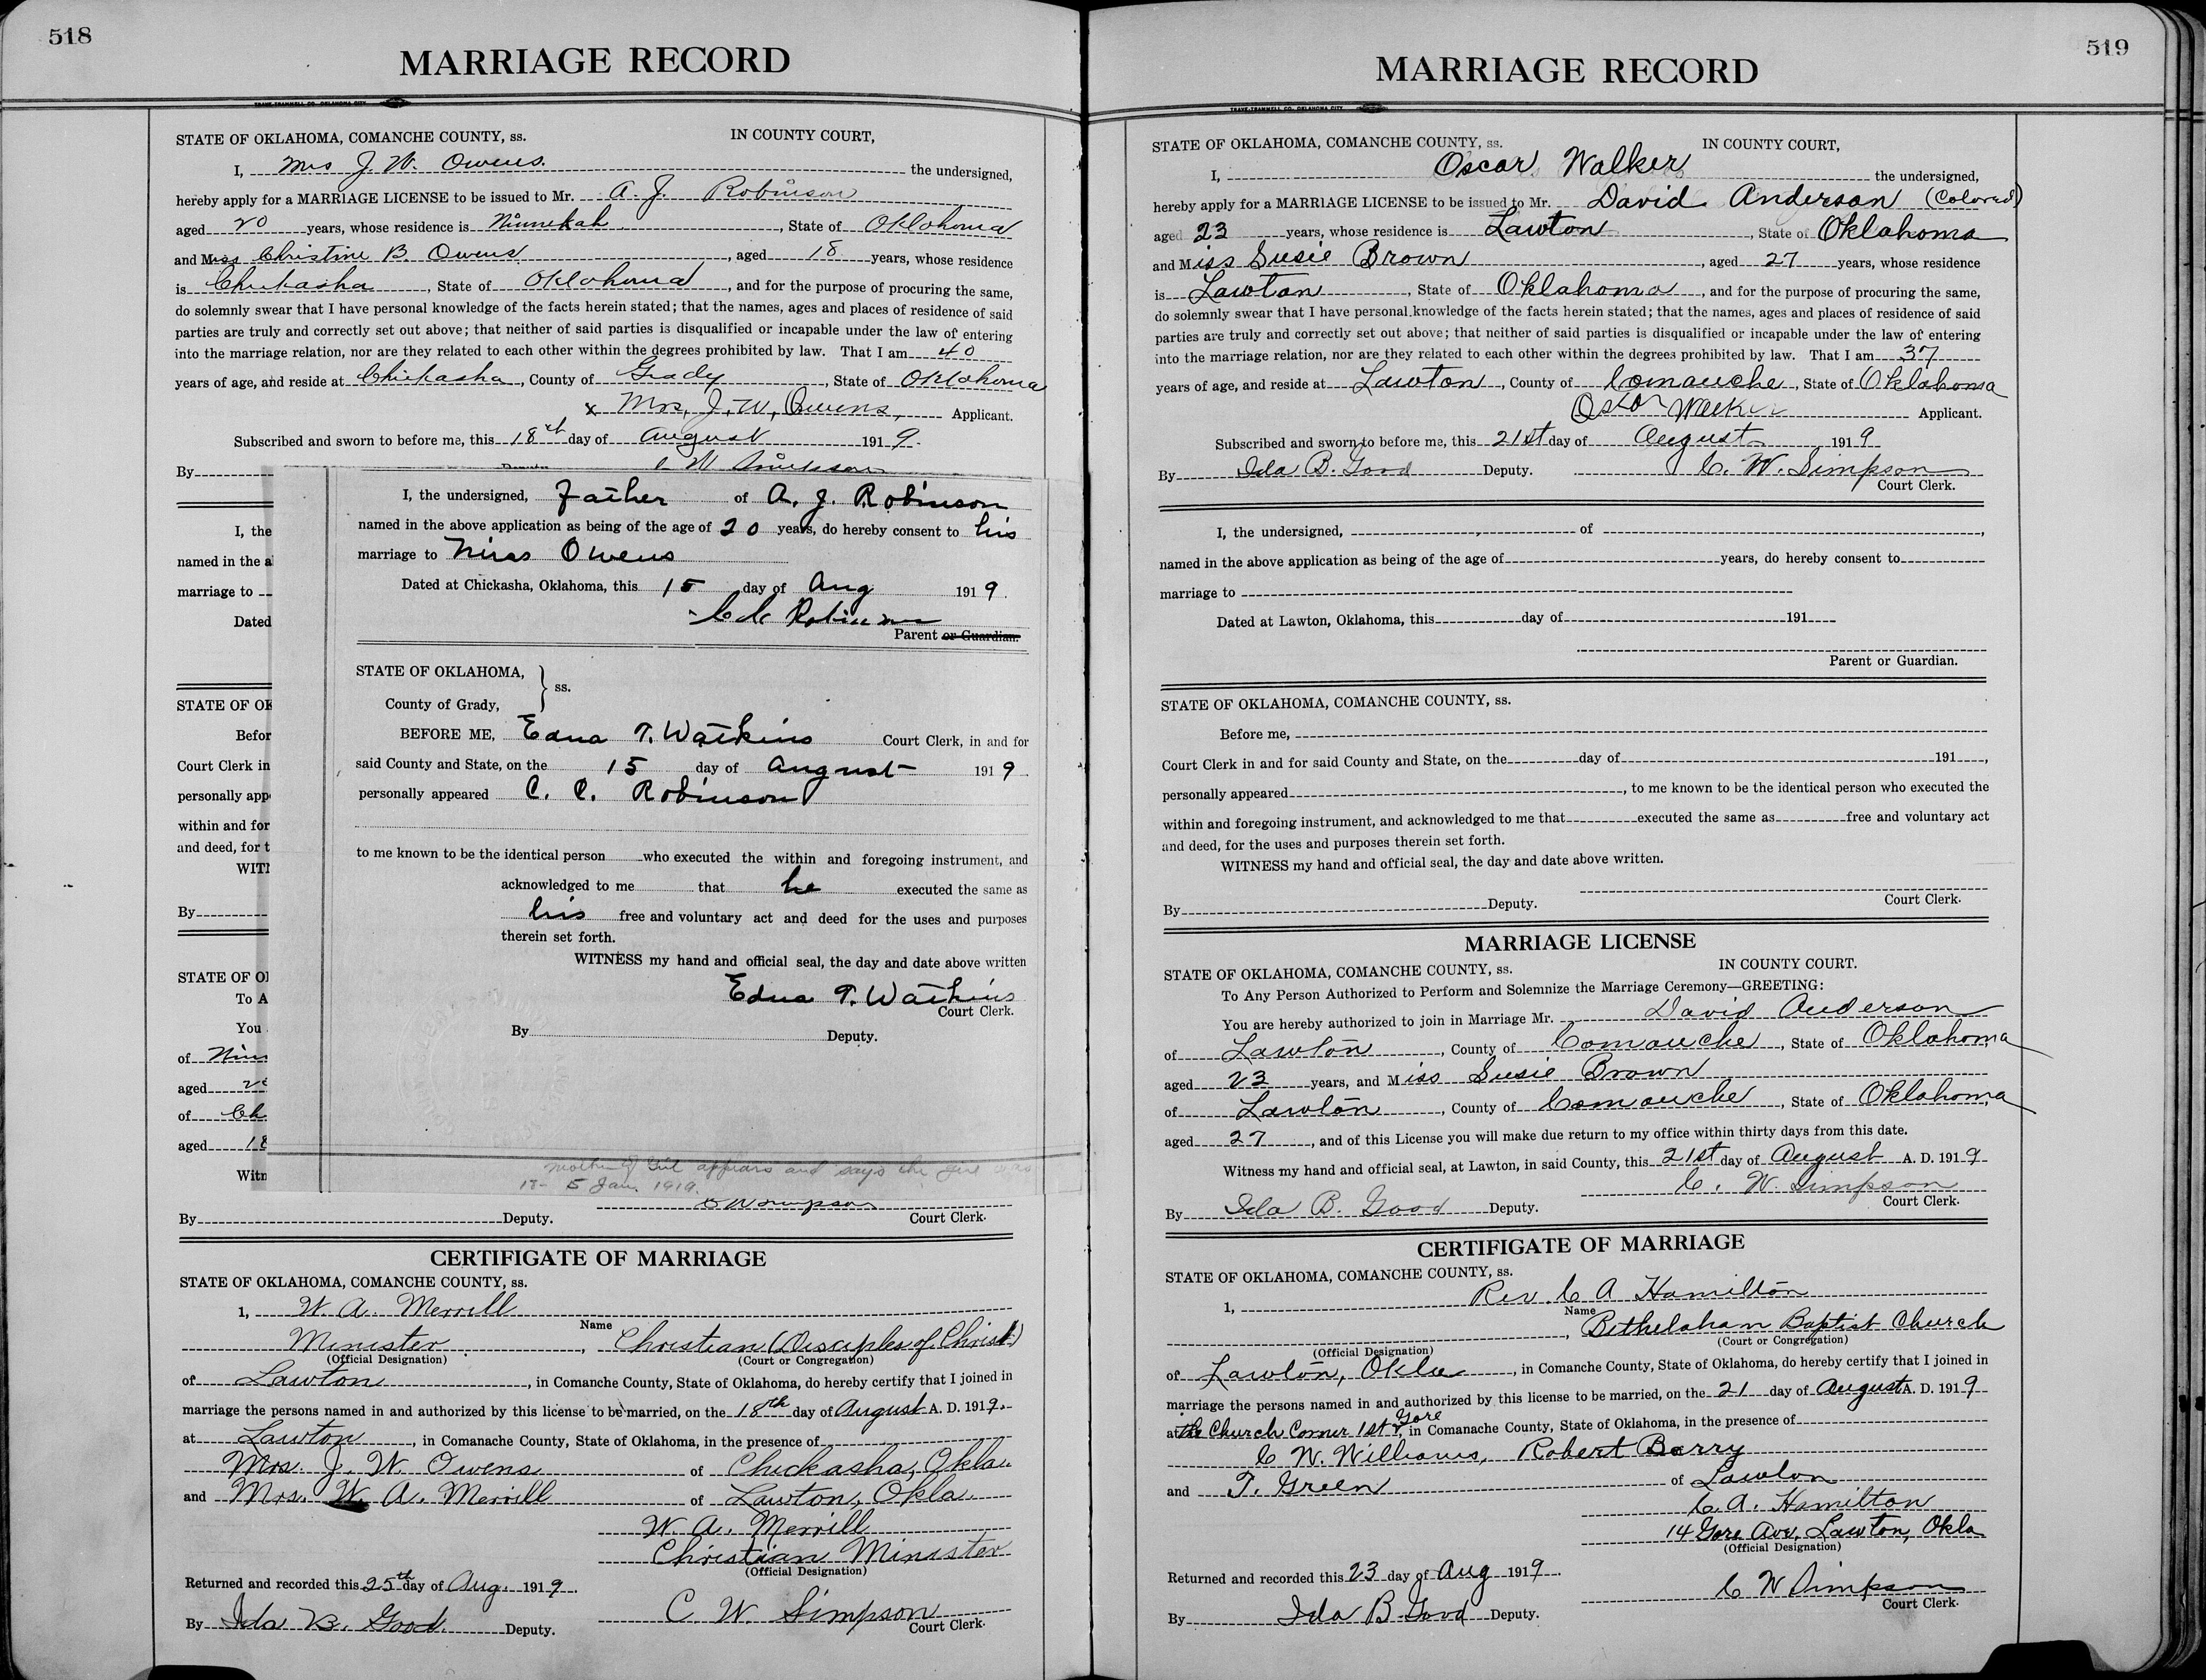 518
MARRIAGE RECORD
TRAVE-TRAMMELL CO. OKLAHOMA CITY
STATE OF OKLAHOMA, COMANCHE COUNTY, ss. IN COUNTY COURT,
I, Mrs J. W. Owens. the undersigned,
hereby apply for a MARRIAGE LICENSE to be issued to Mr. A. J. Robinson
aged 20 years, whose residence is Ninnekah, State of Oklahoma
and Miss Christine B. Owens, aged 18 years, whose residence
is Chickasha, State of Oklahoma, and for the purpose of procuring the same,
do solemnly swear that I have personal knowledge of the facts herein stated; that the names, ages and places of residence of said
parties are truly and correctly set out above; that neither of said parties is disqualified or incapable under the law of entering
into the marriage relation, nor are they related to each other within the degrees prohibited by law. That I am 40
years of age, and reside at Chickasha, County of Grady, State of Oklahoma
x Mrs. J. W. Owens, Applicant.
Subscribed and sworn to before me, this 18th day of August 1919.
By Deputy
I, the
named in the a
marriage to
Dated
STATE OF OK
Befor
Court Clerk in
personally app
within and for
and deed, for t
WIT
By
STATE OF O
To A
You
of Ninn
aged 20
of Ch
aged 18
Witn
I, the undersigned, Father of A. J. Robinson
named in the above application as being of the age of 20 years, do hereby consent to his
marriage to Miss Owens
Dated at Chickasha, Oklahoma, this 15 day of Aug 1919.
C C Robinson
Parent or Guardian.
STATE OF OKLAHOMA,
ss.
County of Grady,
BEFORE ME, Edna T. Watkins Court Clerk, in and for
said County and State, on the 15 day of August 1919.
personally appeared C. C. Robinson
to me known to be the identical person who executed the within and foregoing instrument, and
acknowledged to me that he executed the same as
his free and voluntary act and deed for the uses and purposes
therein set forth.
WITNESS my hand and official seal, the day and date above written
Edna T. Watkins
Court Clerk.
By Deputy.
Mother of Girl appears and says the girl was
17- 5 Jan. 1919.
C W Simpson
By Deputy. Court Clerk.
CERTIFIGATE OF MARRIAGE
STATE OF OKLAHOMA, COMANCHE COUNTY, ss.
1, W. A. Merrill
Name
Minister, Christian (Disciples of Christ)
(Official Designation) (Court or Congregation)
of Lawton, in Comanche County, State of Oklahoma, do hereby certify that I joined in
marriage the persons named in and authorized by this license to be married, on the 18th day of August A. D. 1919.
at Lawton, in Comanache County, State of Oklahoma, in the presence of
Mrs. J. W. Owens of Chickasha, Okla.
and Mrs. W. A. Merrill of Lawton, Okla.
W. A. Merrill
Christian Minister
(Official Designation)
Returned and recorded this 25th day of Aug. 1919.
C. W. Simpson
By Ida B. Good Deputy. Court Clerk.
519
MARRIAGE RECORD
TRAVE-TRAMMELL CO. OKLAHOMA CITY
STATE OF OKLAHOMA, COMANCHE COUNTY, ss. IN COUNTY COURT,
I, Oscar Walker the undersigned,
hereby apply for a MARRIAGE LICENSE to be issued to Mr. David Anderson (Colored)
aged 23 years, whose residence is Lawton, State of Oklahoma
and Miss Susie Brown, aged 27 years, whose residence
is Lawton, State of Oklahoma, and for the purpose of procuring the same,
do solemnly swear that I have personal knowledge of the facts herein stated; that the names, ages and places of residence of said
parties are truly and correctly set out above; that neither of said parties is disqualified or incapable under the law of entering
into the marriage relation, nor are they related to each other within the degrees prohibited by law. That I am 37
years of age, and reside at Lawton, County of Comanche, State of Oklahoma
Oscar Walker Applicant.
Subscribed and sworn to before me, this 21st day of August 1919
By Ida B. Good Deputy. C. W. Simpson
Court Clerk.
I, the undersigned, of
named in the above application as being of the age of years, do hereby consent to
marriage to
Dated at Lawton, Oklahoma, this day of 191
Parent or Guardian.
STATE OF OKLAHOMA, COMANCHE COUNTY, ss.
Before me,
Court Clerk in and for said County and State, on the day of 191,
personally appeared, to me known to be the identical person who executed the
within and foregoing instrument, and acknowledged to me that executed the same as free and voluntary act
and deed, for the uses and purposes therein set forth.
WITNESS my hand and official seal, the day and date above written.
By Deputy. Court Clerk.
MARRIAGE LICENSE
STATE OF OKLAHOMA, COMANCHE COUNTY, ss. IN COUNTY COURT.
To Any Person Authorized to Perform and Solemnize the Marriage Ceremony—GREETING:
You are hereby authorized to join in Marriage Mr. David Anderson
of Lawton, County of Comanche, State of Oklahoma
aged 23 years, and Miss Susie Brown
of Lawton, County of Comanche, State of Oklahoma
aged 27, and of this License you will make due return to my office within thirty days from this date.
Witness my hand and official seal, at Lawton, in said County, this 21st day of August A. D. 1919
C. W. Simpson
By Ida B. Good Deputy. Court Clerk.
CERTIFIGATE OF MARRIAGE
STATE OF OKLAHOMA, COMANCHE COUNTY, ss.
1, Rev. C A Hamilton
Name
, Bethelaham Baptist Church
(Official Designation) (Court or Congregation)
of Lawton, Okla, in Comanche County, State of Oklahoma, do hereby certify that I joined in
marriage the persons named in and authorized by this license to be married, on the 21 day of August A. D. 1919
at the Church Corner 1st & Gore, in Comanache County, State of Oklahoma, in the presence of
C W. Williams, Robert Barry
and T. Green of Lawton
C. A. Hamilton
14 Gore Ave. Lawton, Okla
(Official Designation)
Returned and recorded this 23 day of Aug 1919.
C W Simpson
By Ida B Good Deputy. Court Clerk.